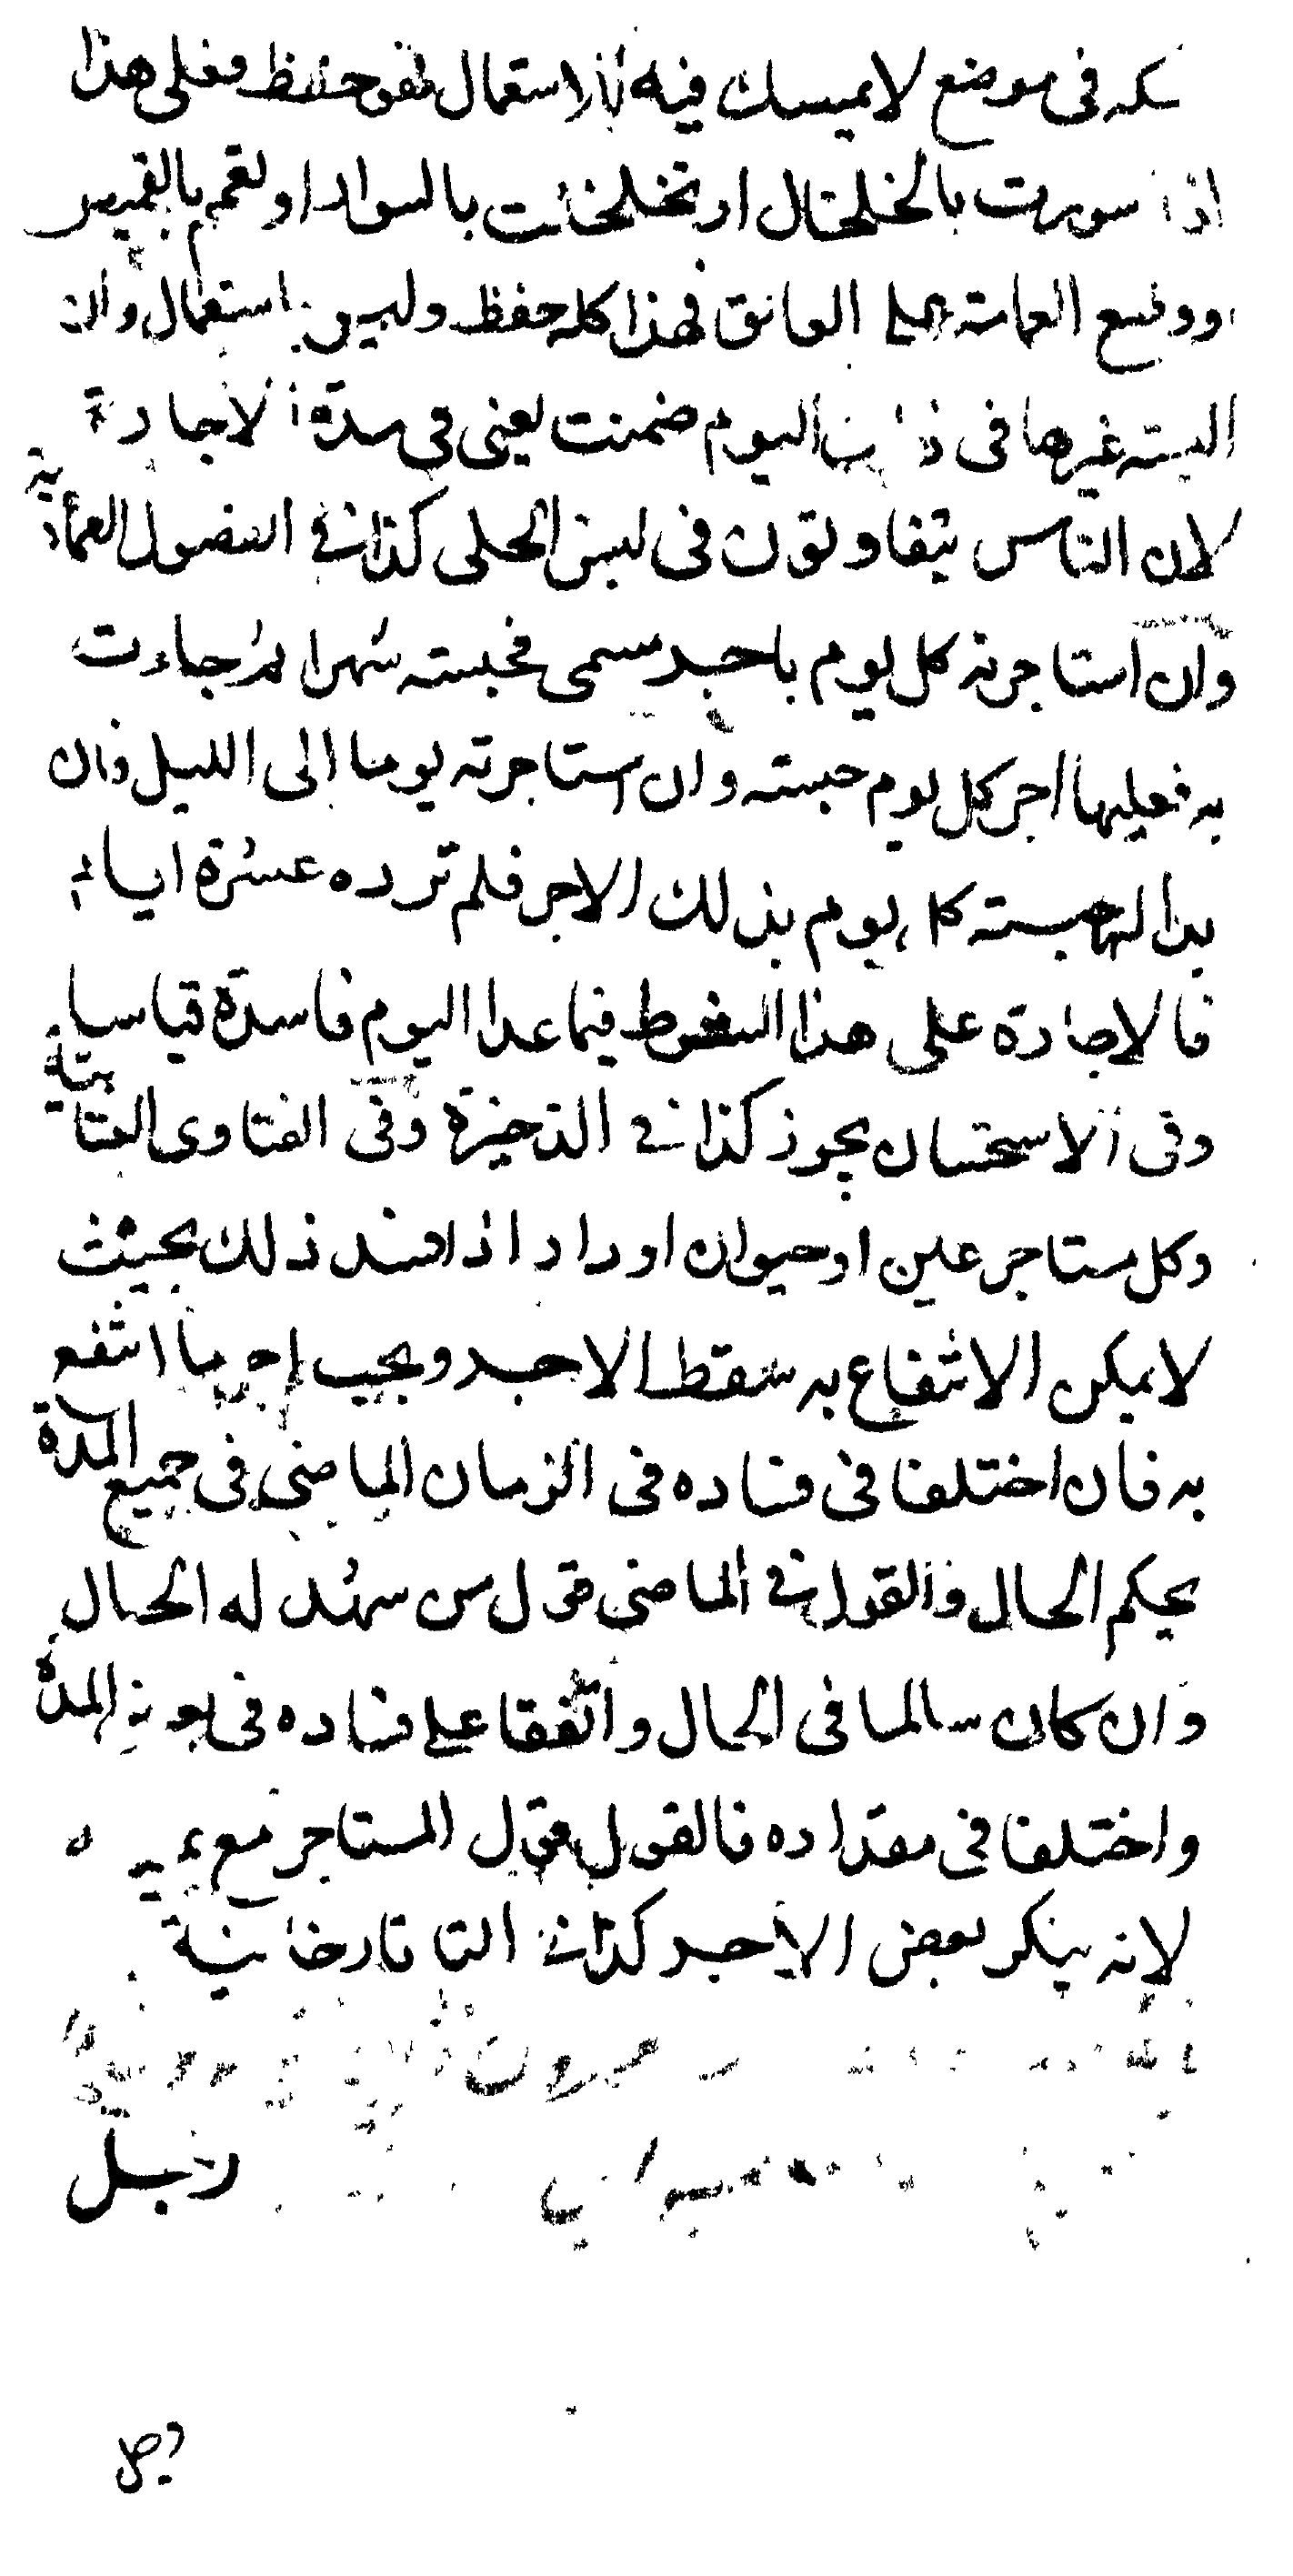 سكه فى موضع لا يمسك فيه للاستعمال فهو حفظ فعلى هذا
اذا سورت بالخلخال او تخلخلت بالسوار او تعمم بالقميص
او وضع العمامة على العاتق فهذا كله حفظ وليس باستعمال وان
البسته غيرها فى ذلك اليوم ضمنت يعنى فى مدة الاجارة
لان الناس يتفاوتون فى لبس الحلى كذا فى الفصول العمادية
وان استاجرته كل يوم باجر مسمى فحبسته شهرا ثم جاءت
به فعليها اجر كل يوم حبسته وان استاجرته يوما الى الليل فان
بدا لها حبسته كل يوم بذلك الاجر فلم ترده عشرة ايام
فالاجارة على هذا الشرط فيما عدا اليوم فاسدة قياسا
وفى الاستحسان يجوز كذا فى الذخيرة وفى الفتاوى العتابية
وكل مستاجر عين او حيوان او دار اذا فسد ذلك بحيث
لا يمكن الانتفاع به سقط الاجر ويجب اجر ما انتفع
به فان اختلفا فى فساده فى الزمان الماضى فى جميع المدة
يحكم الحال والقول فى الماضى قول من شهد له الحال
وان كان سالما فى الحال واتفقا على فساده فى بعض المدة
واختلفا فى مقداره فالقول قول المستاجر مع يمينه
لانه ينكر بعض الاجر كذا فى التاتارخانية
رجل